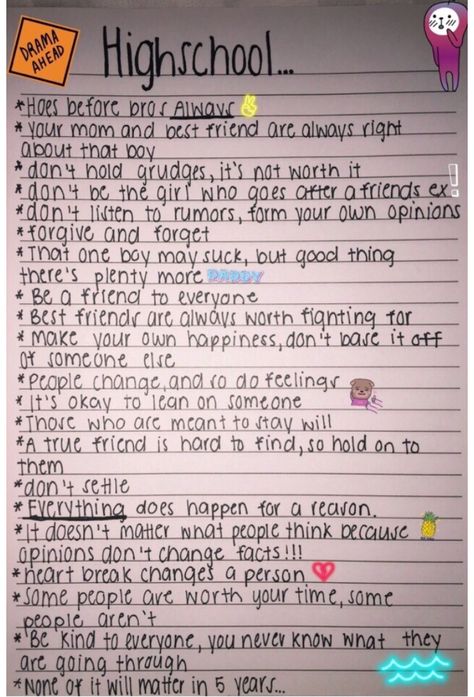 DRAMA
AHEAD
Highschool...
*Hoes before bros Always
*your mom and best friend are always right
about that boy
*don't hold grudges, it's not worth it
*don't be the girl who goes after a friends ex!
*don't listen to rumors, form your own opinions
*forgive and forget
*That one boy may suck, but good thing
there's plenty more DADDY
* Be a friend to everyone
* Best friends are always worth fighting for
* make your own happiness, don't base it off
of someone else
*people change, and so do feelings
* It's okay to lean on someone
*Those who are meant to stay will
*A true friend is hard to find, so hold on to
them
*don't settle
* Everything does happen for a reason.
*It doesn't matter what people think because
opinions don't change facts!!!
*heart break changes a person
*Some people are worth your time, some
people aren't
*Be kind to everyone, you never know what they
are going through
*None of it will matter in 5 years...